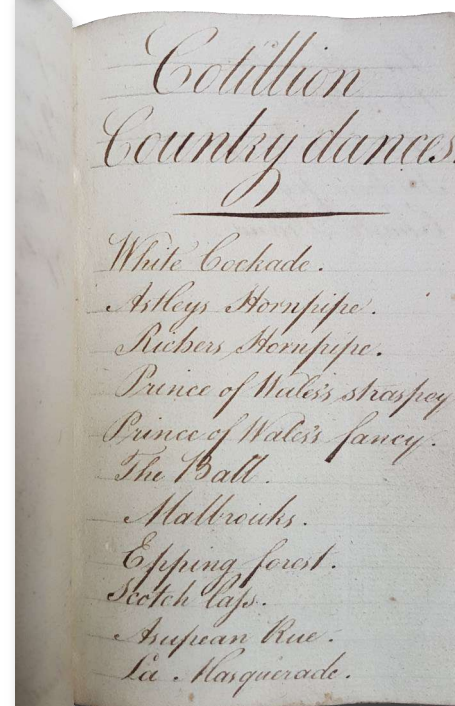 Cotillion
Country dances.
White Cockade.
Astleys Hornpipe.
Richers Hornpipe.
Prince of Wales's straspey
Prince of Wales's fancy.
The Ball.
Malbrouks.
Epping forest.
Scotch laſs.
Rue.
La Masquerade.